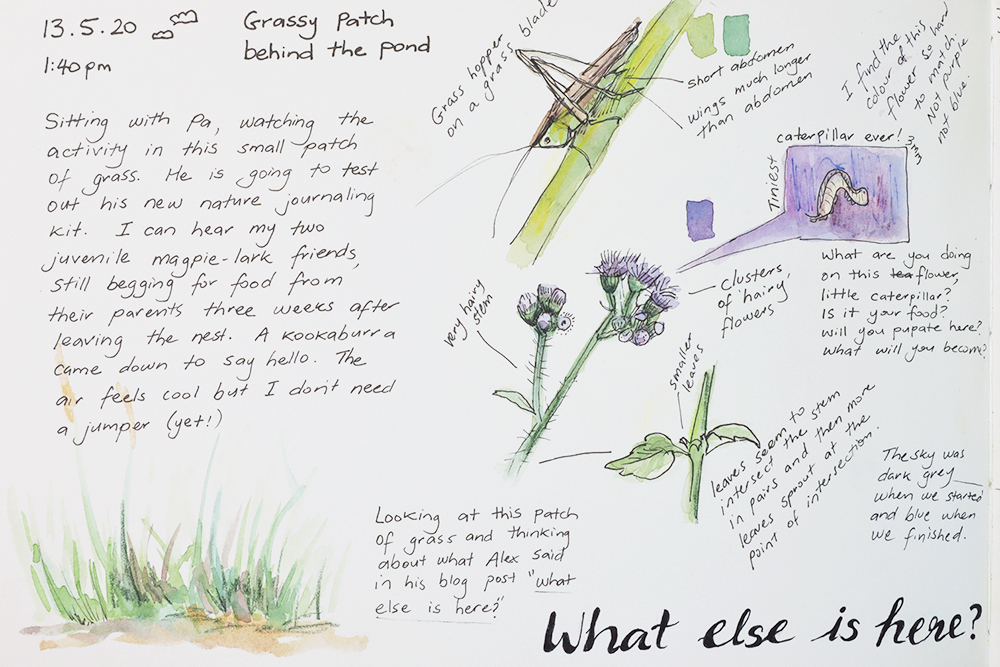 13.5.20
1:40pm
Grassy Patch
behind the pond
Sitting with Pa, watching the
activity in this small patch
of grass. He is going to test
out his new nature journaling
kit. I can hear my two
juvenile magpie-lark friends,
still begging for food from
their parents three weeks after
leaving the nest. A Kookaburra
came down to say hello. The
air feels cool but I don't need
a jumper (yet!)
Grass hopper
on a grass blade
short abdomen
wings much longer
than abdomen
I find the
colour of this
flower so hard
to match.
Not purple
not blue.
Tiniest
caterpillar ever!
3mm
What are you doing
on this tea flower,
little caterpillar?
Is it your food?
Will you pupate here?
What will you become?
very hairy
stem
clusters,
of 'hairy
flowers
smaller
leaves
leaves seem to
intersect the stem
in pairs and then more
leaves sprout at the
point of intersection.
The sky was
dark grey
when we started
and blue when
we finished.
Looking at this patch
of grass and thinking
about what Alex said
in his blog post "what
else is here?"
What else is here?